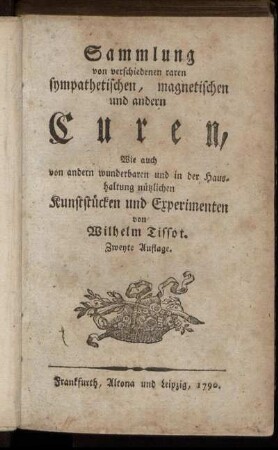 Sammlung
von verschiedenen raren
sympathetischen, magnetischen
und andern
Curen,
Wie auch
von andern wunderbaren und in der Haus-
haltung nützlichen
Kunststücken und Experimenten
von
Wilhelm Tissot.
Zweyte Auflage.
Frankfurth, Altona und Leipzig, 1790.